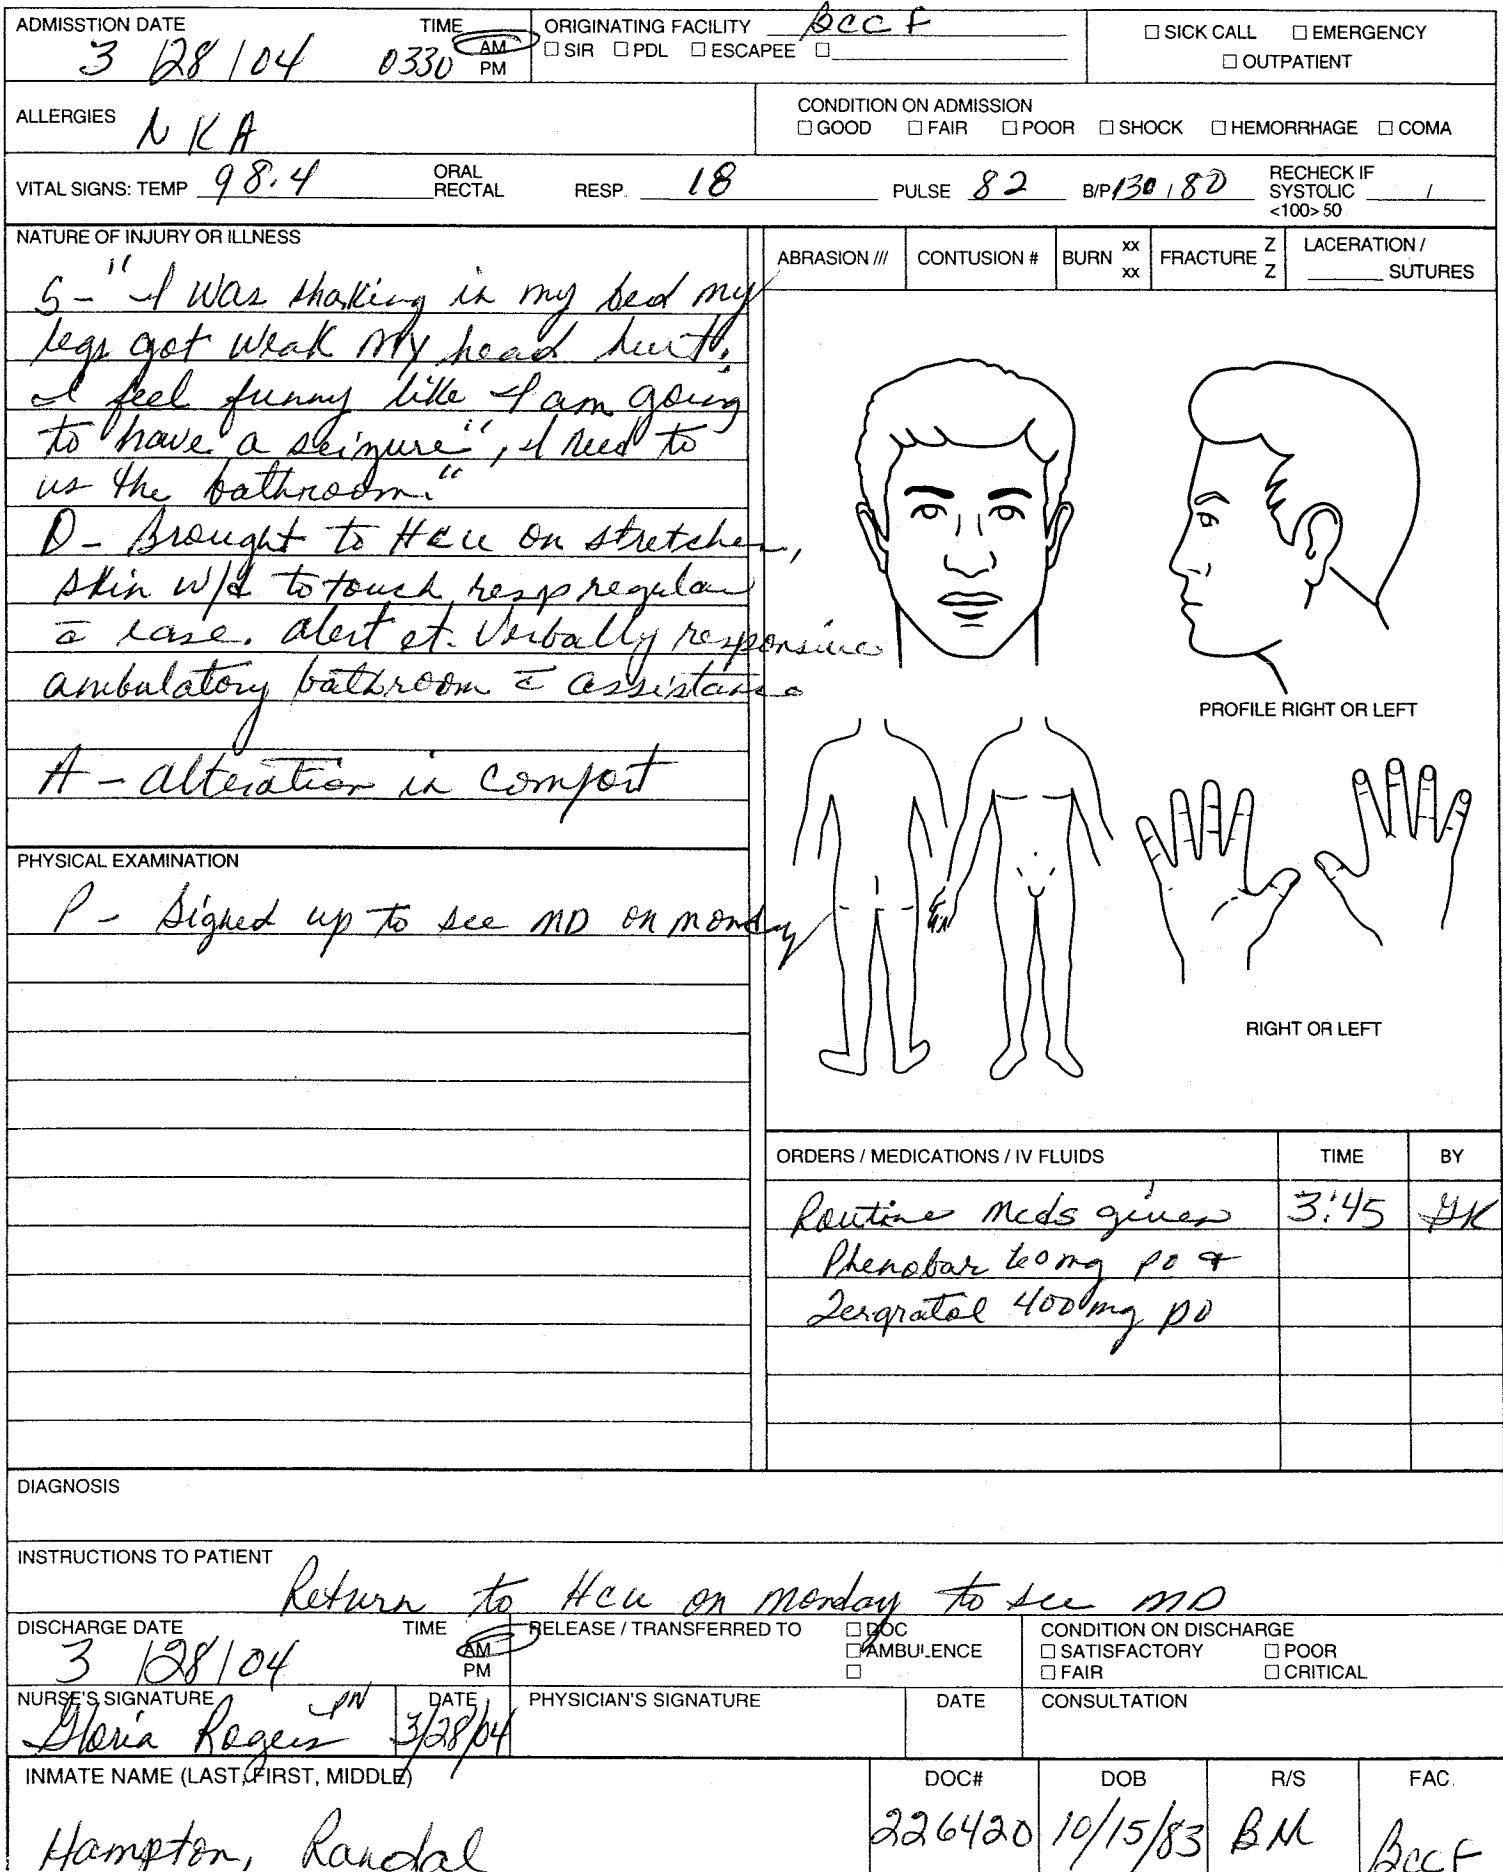 ADMISSTION DATE TIME AM PM
3 / 28 / 04 0330
ORIGINATING FACILITY BCCF
☐ SIR ☐ PDL ☐ ESCAPEE ☐
☐ SICK CALL ☐ EMERGENCY
☐ OUTPATIENT
ALLERGIES NKA
CONDITION ON ADMISSION
☐ GOOD ☐ FAIR ☐ POOR ☐ SHOCK ☐ HEMORRHAGE ☐ COMA
VITAL SIGNS: TEMP 98.4 ORAL RECTAL RESP. 18 PULSE 82 B/P 130 / 80 RECHECK IF SYSTOLIC <100> 50 /
NATURE OF INJURY OR ILLNESS
S - "I was shaking in my bed my
legs got weak my head hurt.
I feel funny like I am going
to have a seizure", I need to
us the bathroom."
O - Brought to HCU on stretcher,
skin w/d to touch resp regular
c̄ ease. alert et. Verbally responsive
ambulatory bathroom c̄ assistance
A - alteration in comfort
PHYSICAL EXAMINATION
P - Signed up to see MD on monday
ABRASION /// CONTUSION # BURN xx xx FRACTURE Z Z LACERATION / ______ SUTURES
PROFILE RIGHT OR LEFT
RIGHT OR LEFT
ORDERS / MEDICATIONS / IV FLUIDS TIME BY
Routine Meds given 3:45
Phenobar 60mg po &
Tergratol 400mg po
DIAGNOSIS
INSTRUCTIONS TO PATIENT
Return to Hcu on monday to see MD
DISCHARGE DATE TIME AM PM
3 / 28 / 04
RELEASE / TRANSFERRED TO ☐ DOC
☐ AMBULENCE
☐
CONDITION ON DISCHARGE
☐ SATISFACTORY ☐ POOR
☐ FAIR ☐ CRITICAL
NURSE'S SIGNATURE DATE PHYSICIAN'S SIGNATURE DATE CONSULTATION
Gloria Rogers LPN 3/28/04
INMATE NAME (LAST, FIRST, MIDDLE) DOC# DOB R/S FAC.
Hampton, Randal 226420 10/15/83 BM BCCF